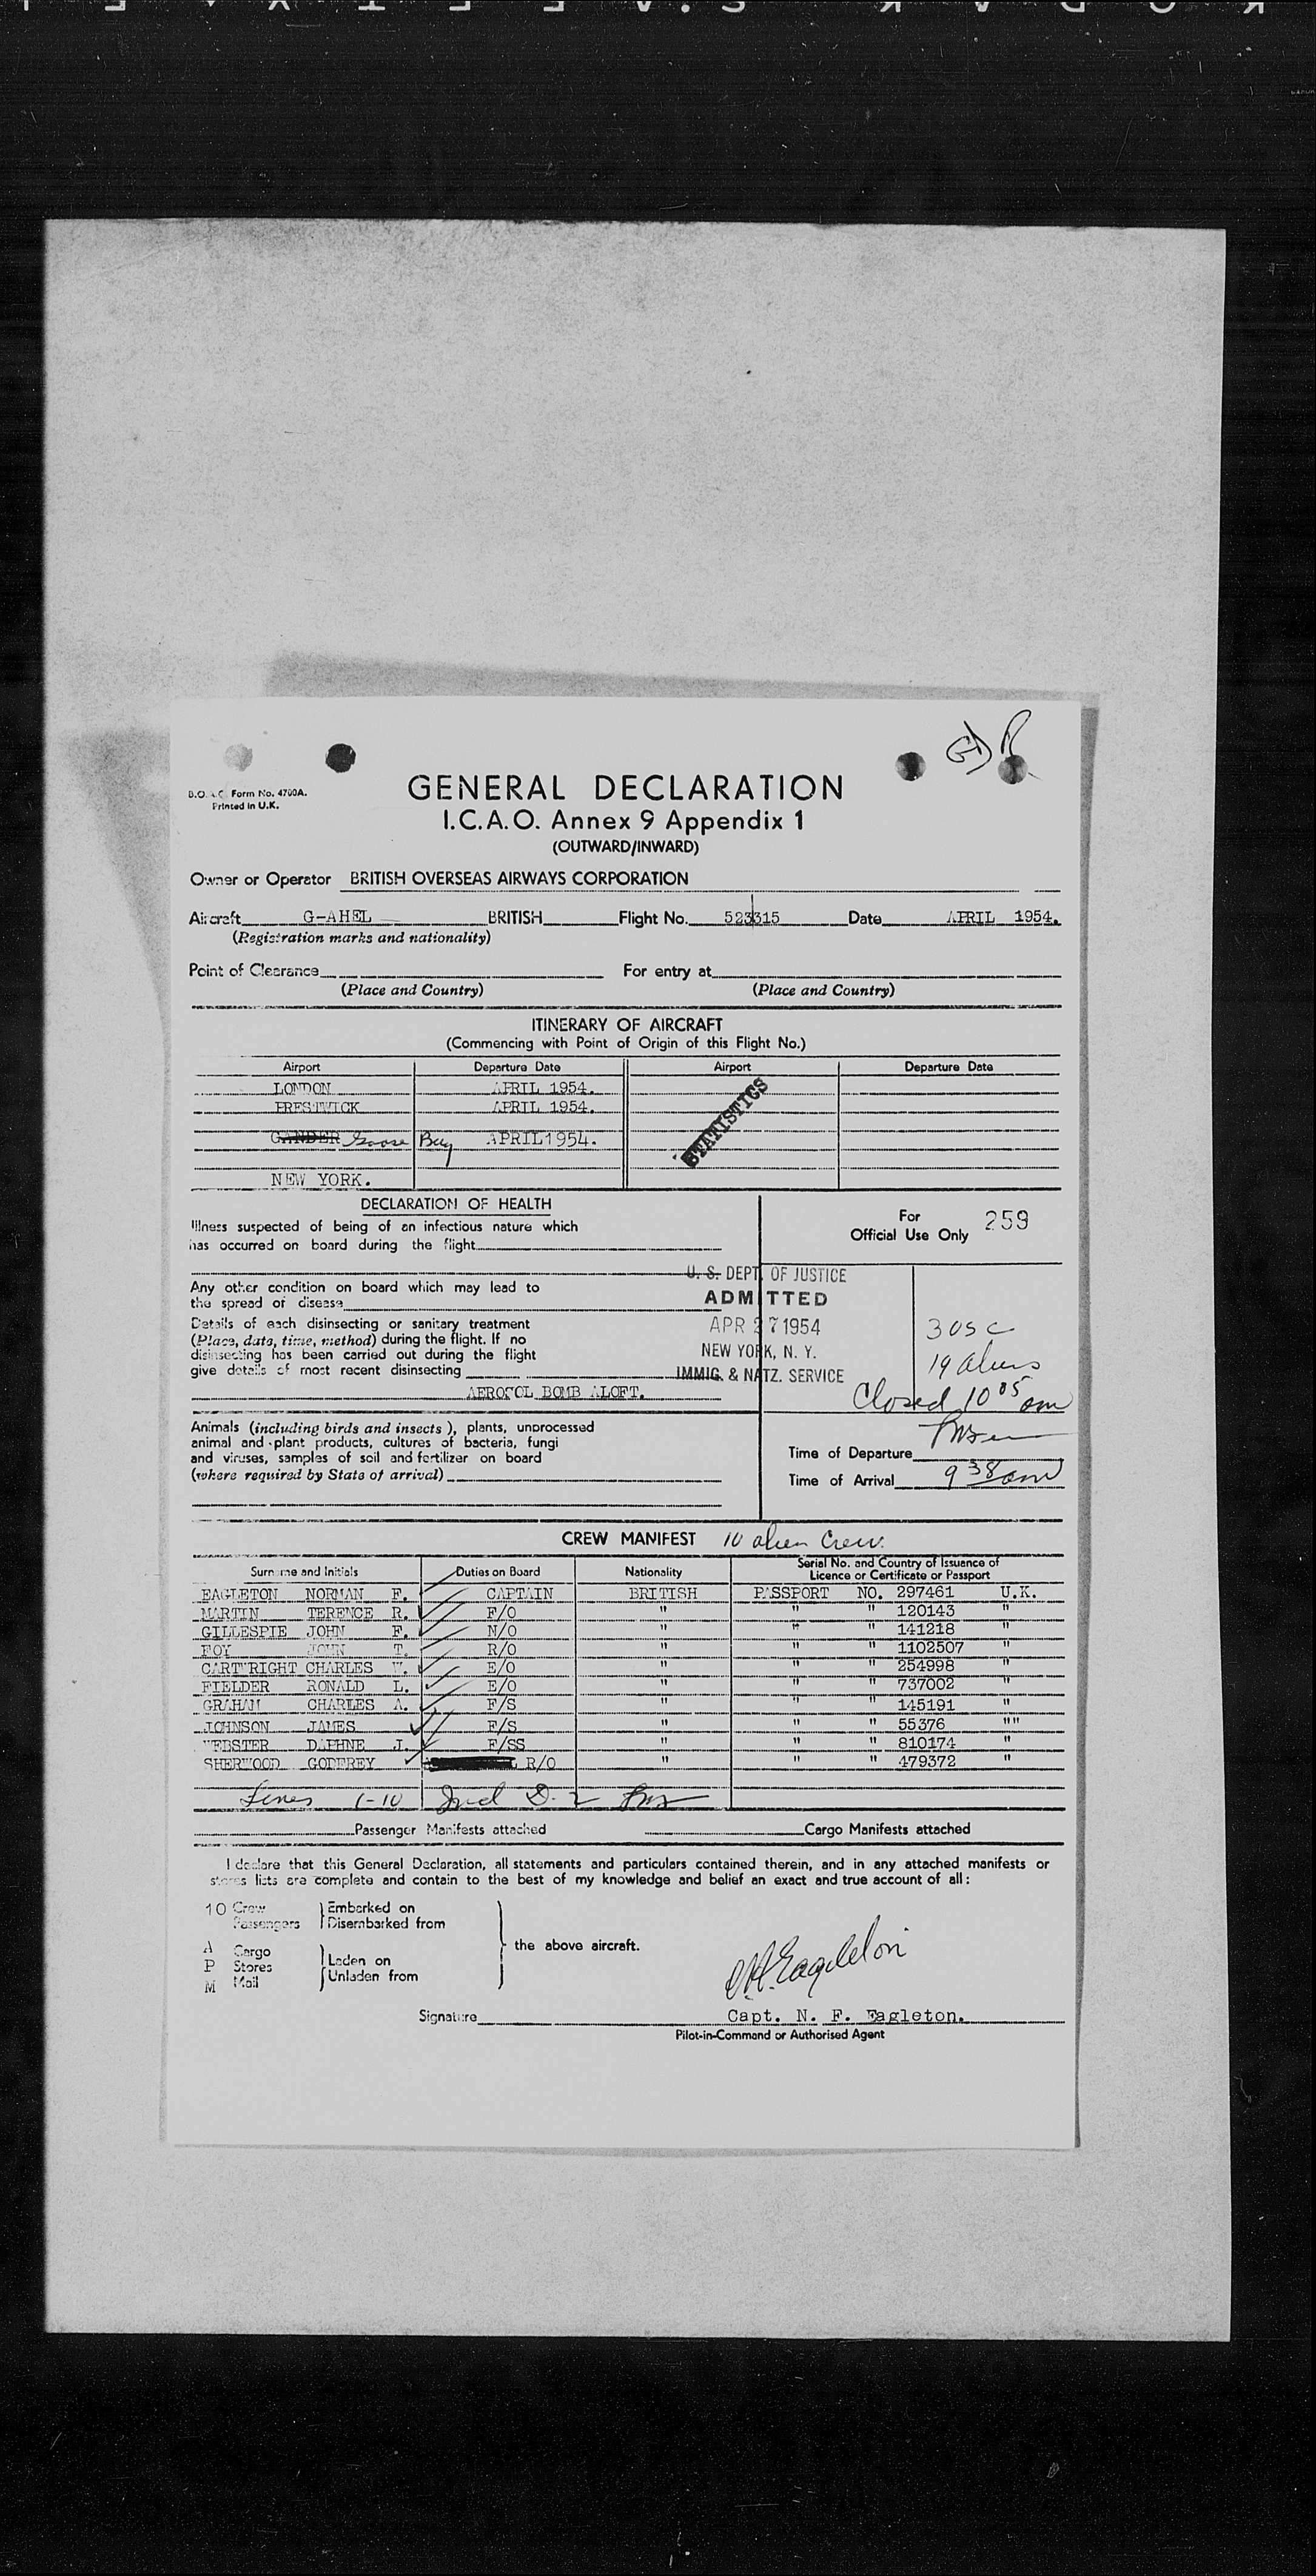 B.O.A.C. Form No. 4700A.
Printed in U.K.
GENERAL DECLARATION
I.C.A.O. Annex 9 Appendix 1
(OUTWARD/INWARD)
Owner or Operator BRITISH OVERSEAS AIRWAYS CORPORATION
Aircraft G-AHEL BRITISH Flight No. 523315 Date APRIL 1954.
(Registration marks and nationality)
Point of Clearance For entry at
(Place and Country) (Place and Country)
ITINERARY OF AIRCRAFT
(Commencing with Point of Origin of this Flight No.)
Airport Departure Date Airport Departure Date
LONDON APRIL 1954.
PRESTWICK APRIL 1954.
GANDER Goose Bay APRIL1954.
NEW YORK.
STATISTICS
DECLARATION OF HEALTH
Illness suspected of being of an infectious nature which
has occurred on board during the flight
For
Official Use Only 259
Any other condition on board which may lead to
the spread of disease
Details of each disinsecting or sanitary treatment
(Place, date, time, method) during the flight. If no
disinsecting has been carried out during the flight
give details of most recent disinsecting
AEROSOL BOMB ALOFT.
U. S. DEPT. OF JUSTICE
ADMITTED
APR 27 1954
NEW YORK, N. Y.
IMMIG. & NATZ. SERVICE
30 SC
19 aliens
Closed 10 05 am
Animals (including birds and insects), plants, unprocessed
animal and plant products, cultures of bacteria, fungi
and viruses, samples of soil and fertilizer on board
(where required by State of arrival)
Time of Departure
Time of Arrival 9 38 am
CREW MANIFEST 10 alien Crew
Surname and Initials Duties on Board Nationality Serial No. and Country of Issuance of
Licence or Certificate or Passport
EAGLETON NORMAN F. CAPTAIN BRITISH PASSPORT NO. 297461 U.K.
MARTIN TERENCE R. F/O " " " 120143 "
GILLESPIE JOHN F. N/O " " " 141218 "
FOY JOHN T. R/O " " " 1102507 "
CARTWRIGHT CHARLES W. E/O " " " 254998 "
FIELDER RONALD L. E/O " " " 737002 "
GRAHAM CHARLES A. F/S " " " 145191 "
JOHNSON JAMES F/S " " " 55376 ""
WEBSTER DAPHNE J. F/SS " " " 810174 "
SHERWOOD GODFREY R/O " " " 479372 "
Lines 1-10 Ind D-2
Passenger Manifests attached Cargo Manifests attached
I declare that this General Declaration, all statements and particulars contained therein, and in any attached manifests or
stores lists are complete and contain to the best of my knowledge and belief an exact and true account of all:
10 Crew Embarked on
Passengers Disembarked from
the above aircraft.
A Cargo
P Stores Laden on
M Mail Unladen from
N.F. Eagleton
Signature Capt. N. F. Eagleton.
Pilot-in-Command or Authorised Agent